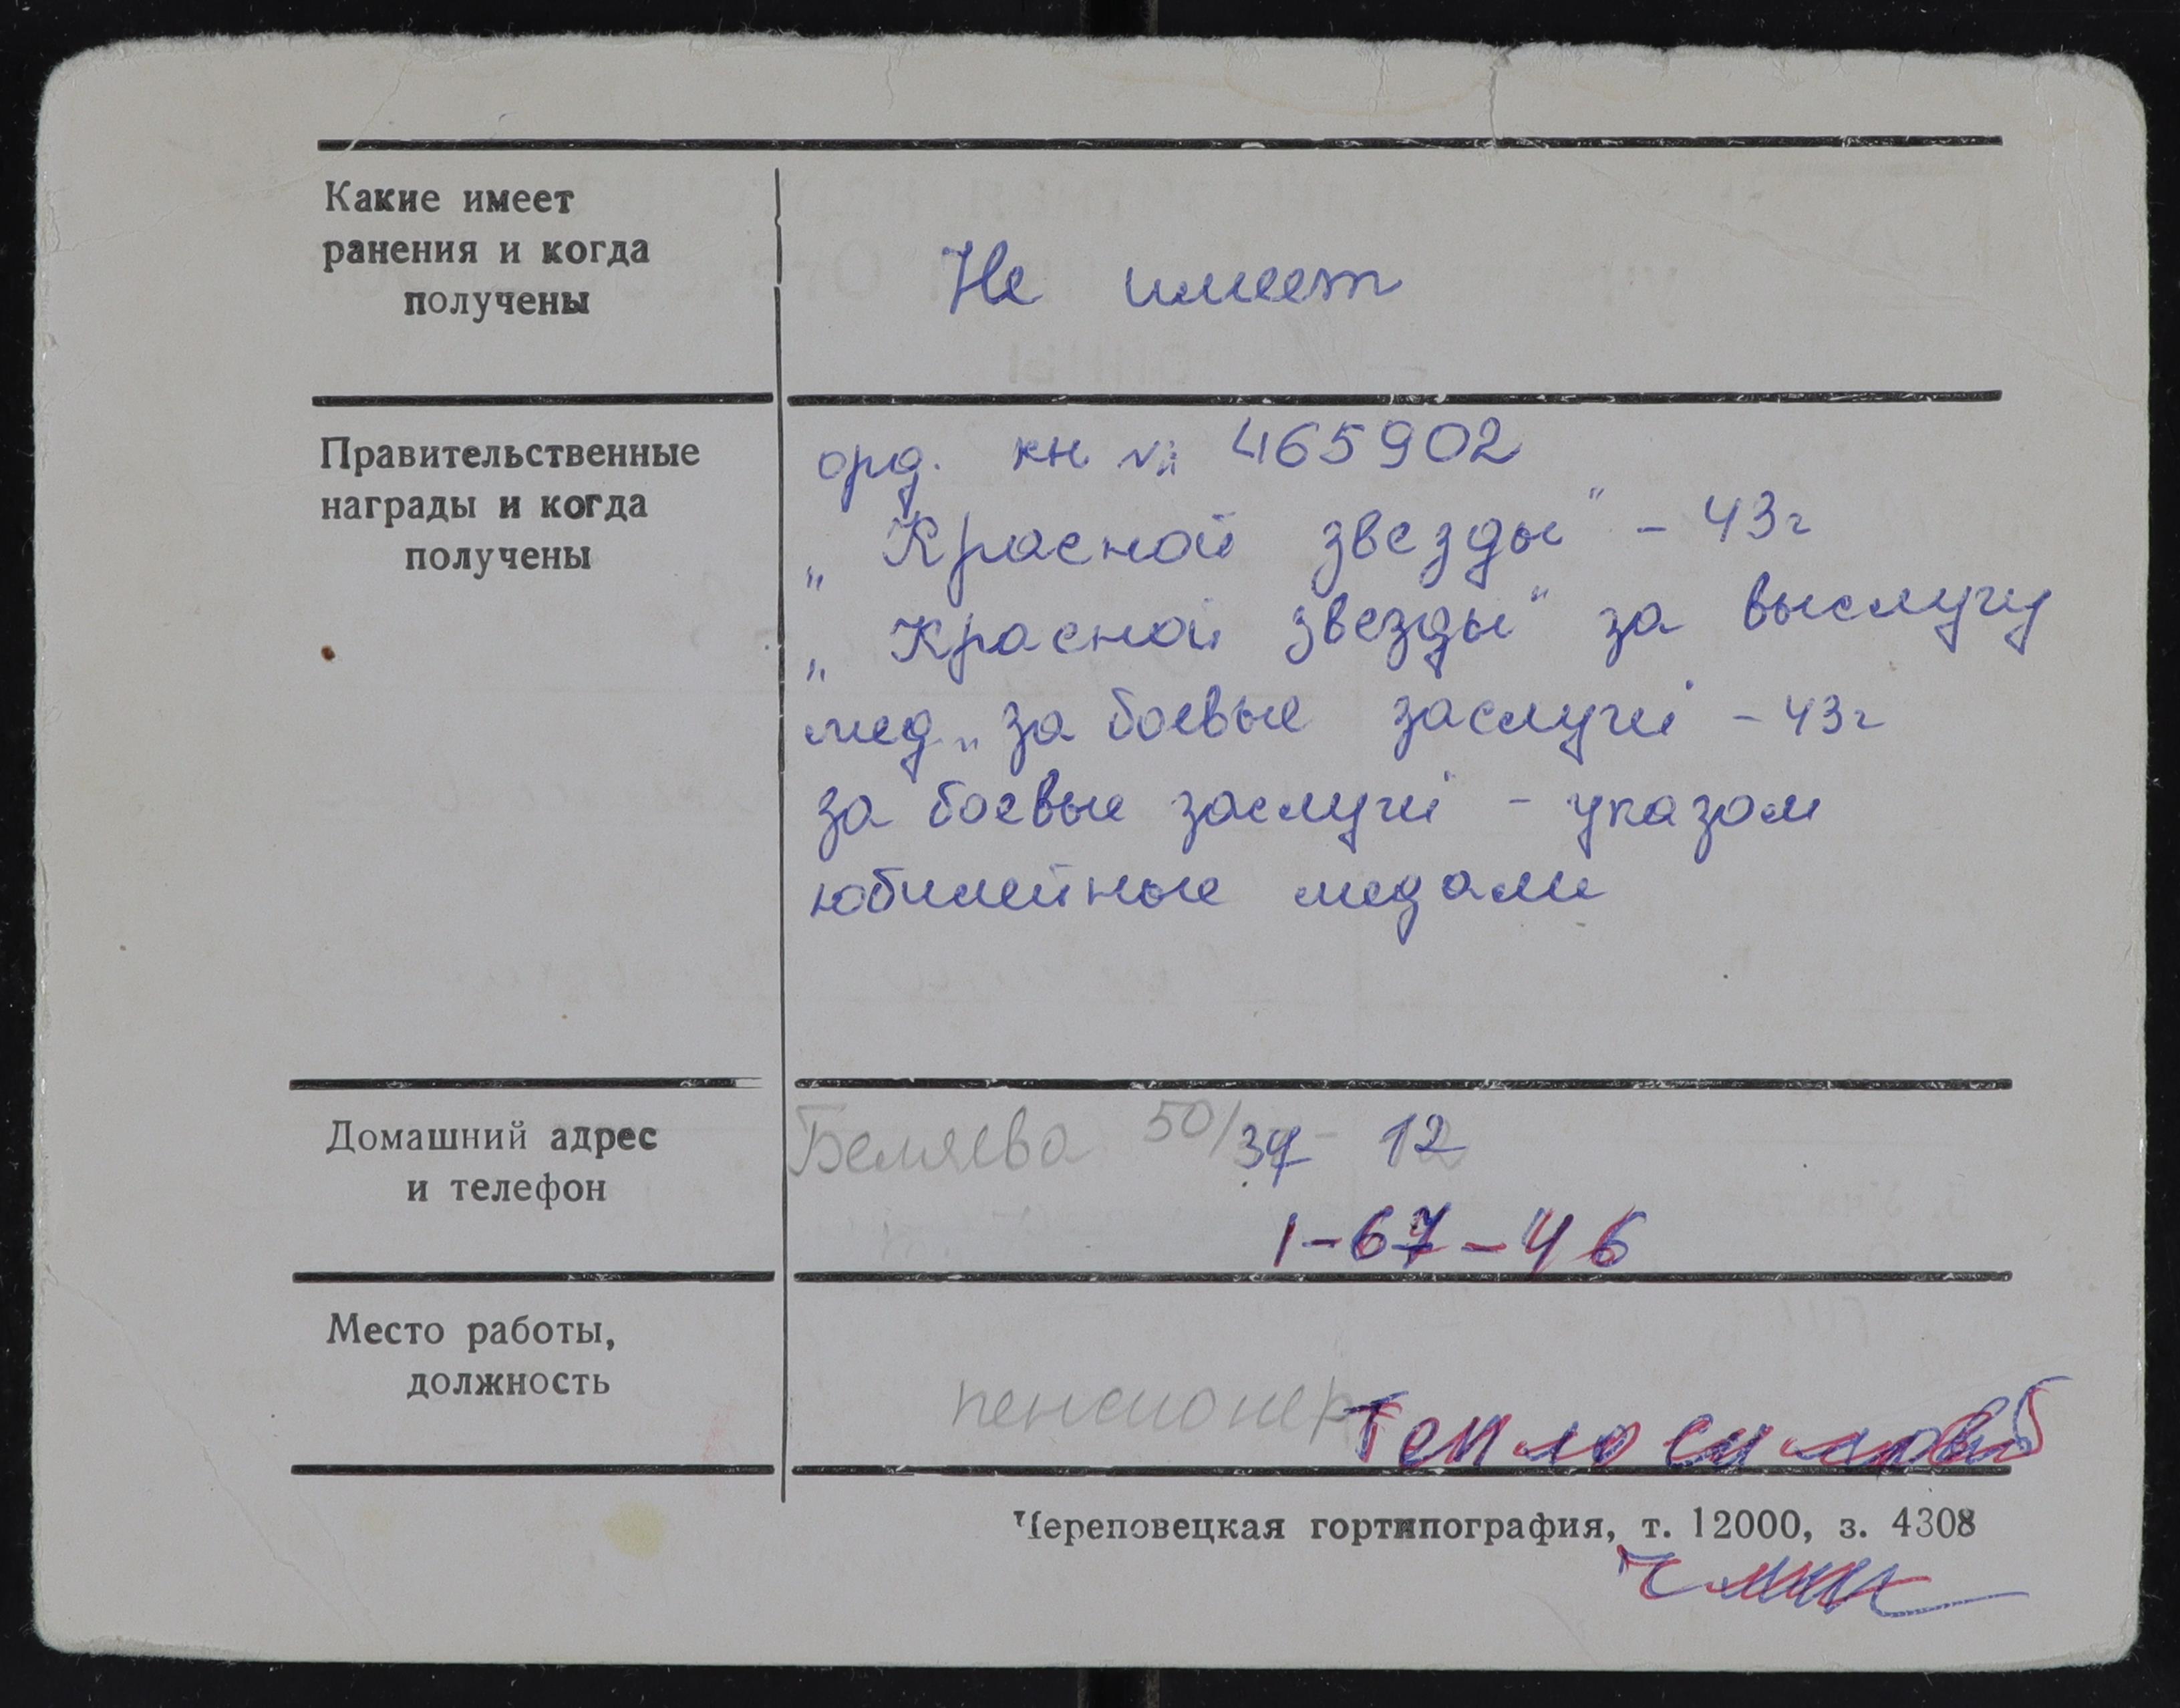 Какие имеет
ранения и когда
получены
Не имеет
Правительственные
награды и когда
получены
орд. кн № 465902
„Красной звезды" - 43г
„Красной звезды" за выслугу
мед „за боевые заслуги - 43г
за боевые заслуги - указом
юбилейные медали
Домашний адрес
и телефон
Беляева 50/37 - 12
1-67-46
Место работы,
должность
пенсионер
Теплосиловой
Череповецкая гортипография, т. 12000, з. 4308